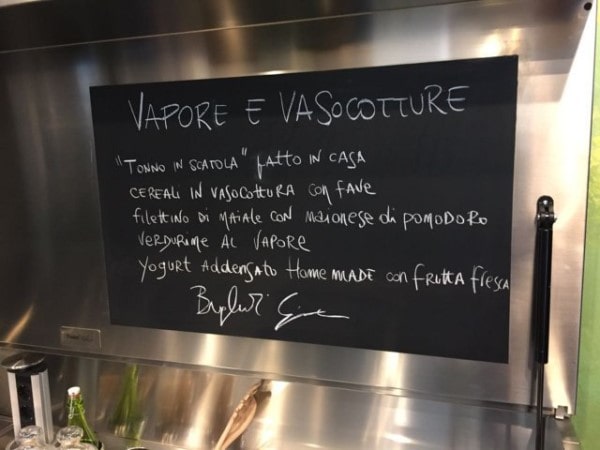 VAPORE E VASOCOTTURE
"TONNO IN SCATOLA" fATTO IN CASA
CEREALI IN VASOCOTTURA CON fAVE
fILETTINO DI MAIALE CON MAIONESE di POMODORO
VERDURINE AL VAPORE
YOGURT AddENSATO HOME MADE CON fRUTTA fRESCA